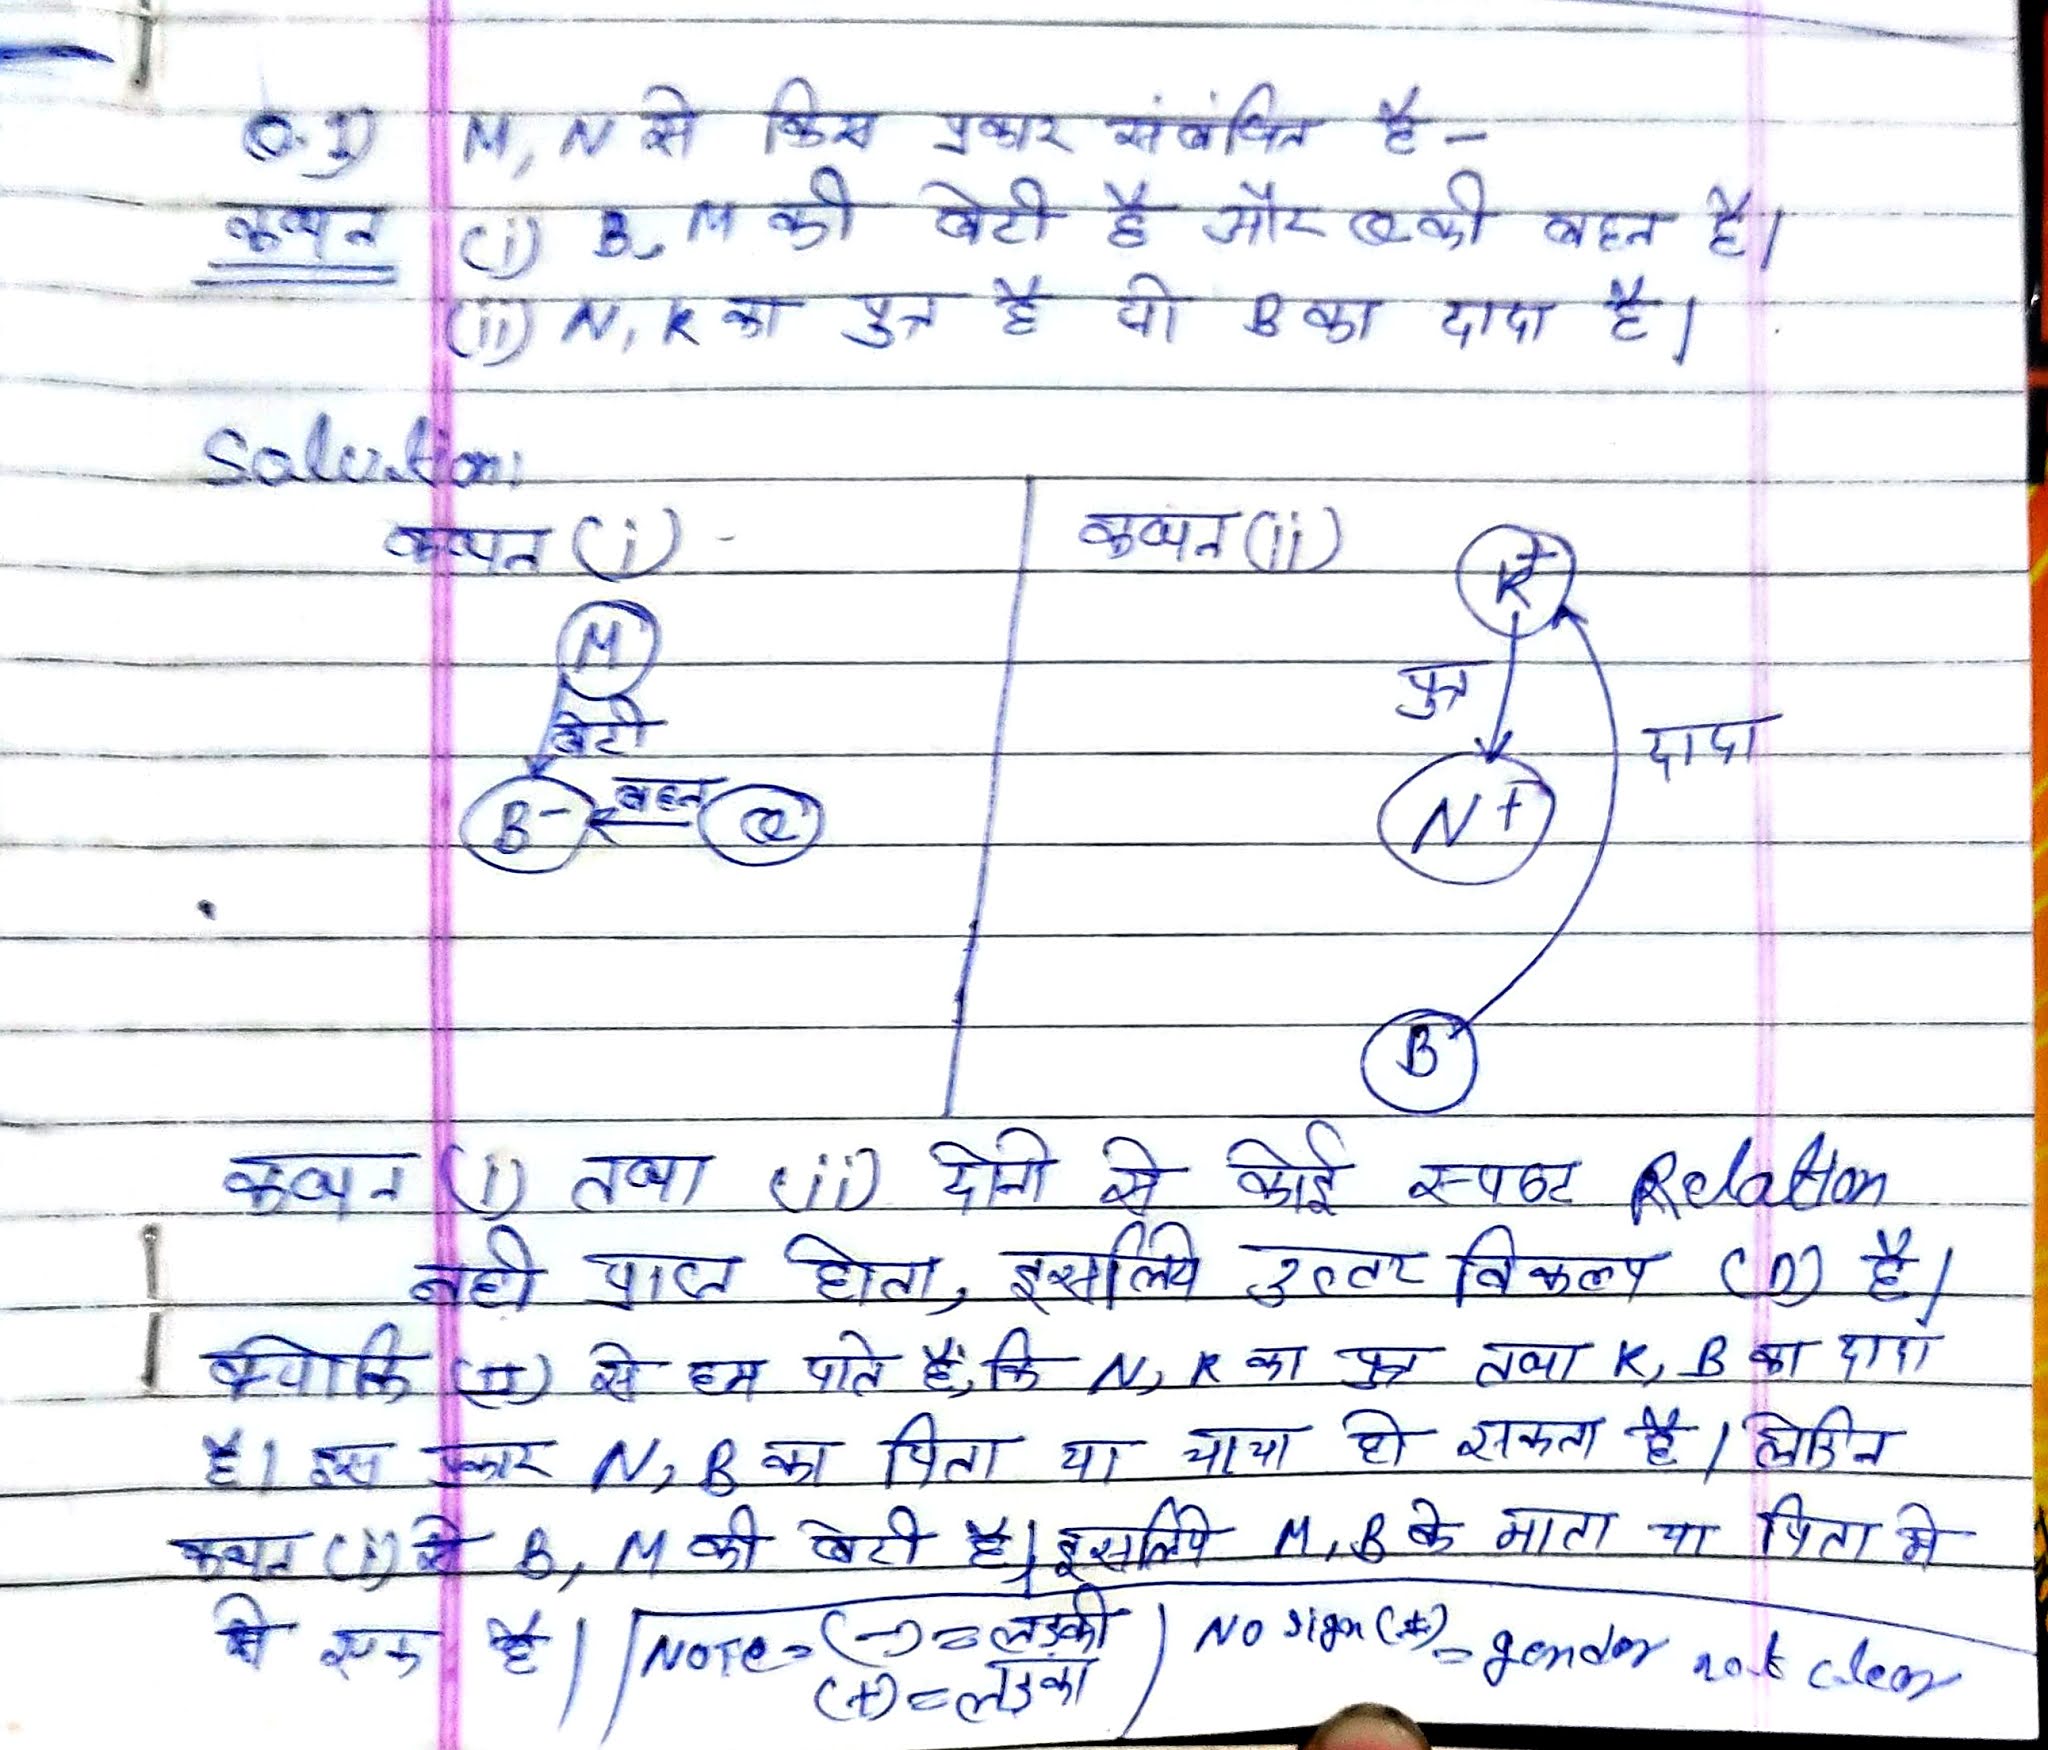 Q.1) M, N से किस प्रकार संबंधित है -
कथन (i) B, M की बेटी है और Q की बहन है।
(ii) N, K का पुत्र है जो B का दादा है।
Solution:
कथन (i) -
M
बेटी
B- बहन Q
कथन (ii)
K+
पुत्र
दादा
N+
B
कथन (i) तथा (ii) दोनो से कोई स्पष्ट Relation
नही प्राप्त होता, इसलिये उत्तर विकल्प (D) है।
क्योकि (II) से हम पाते है, कि N, K का पुत्र तथा K, B का दादा
है। इस प्रकार N, B का पिता या चाचा हो सकता है। लेकिन
कथन (i) से B, M की बेटी है। इसलिये M, B के माता या पिता मे
से एक है। NOTE = (-) = लडकी No sign (±) = gender not clear
(+) = लडका